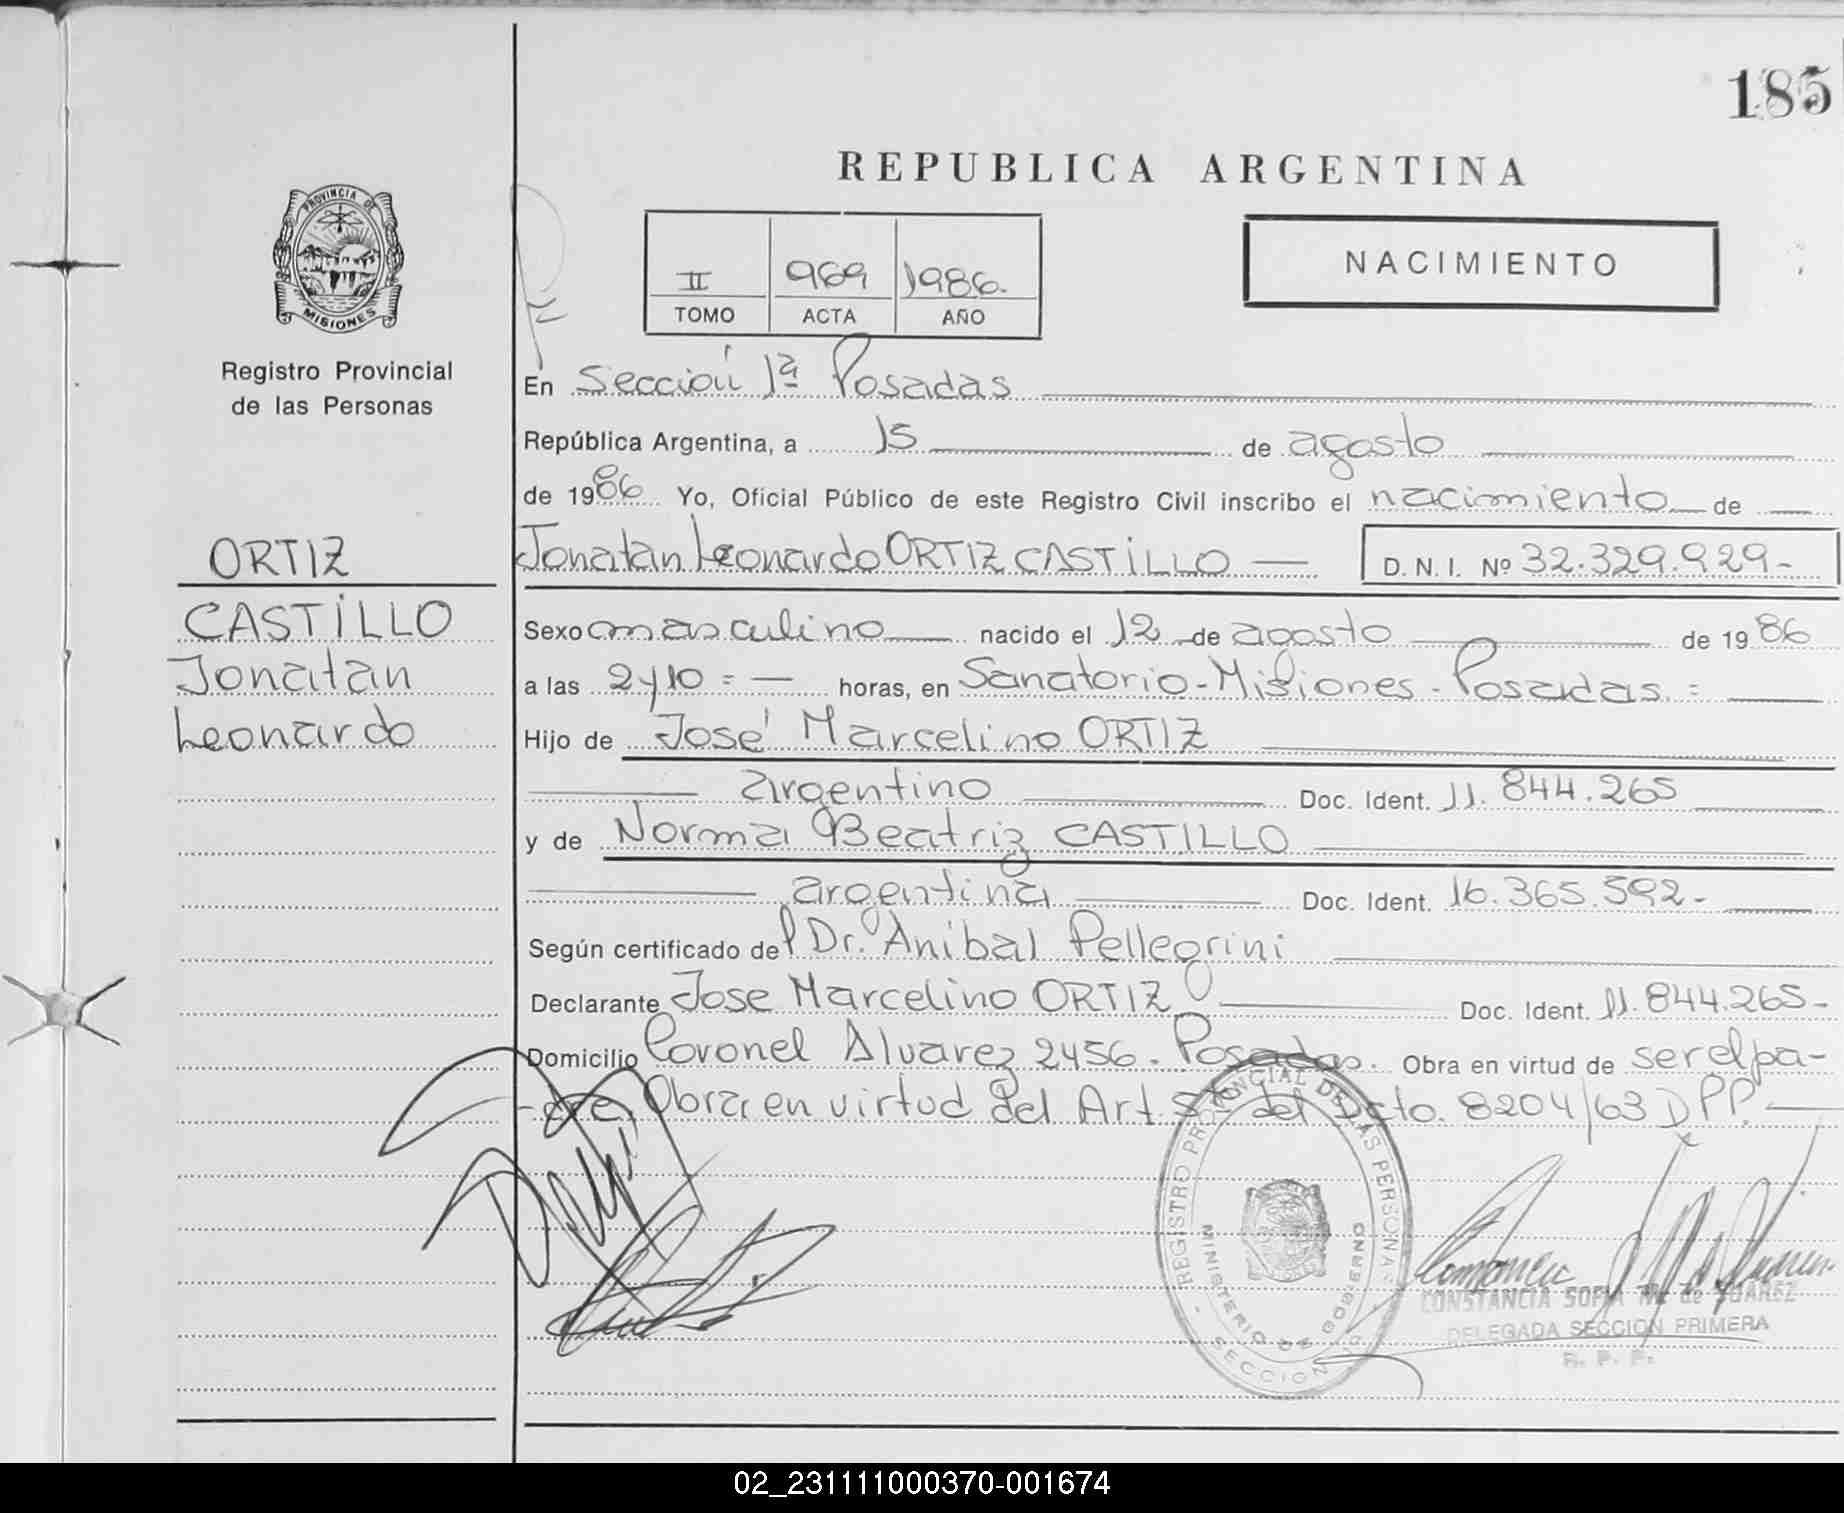 185
REPUBLICA ARGENTINA
PROVINCIA DE
MISIONES
Registro Provincial
de las Personas
II 969 1986.
TOMO ACTA AÑO
NACIMIENTO
En Sección 1ª Posadas
República Argentina, a 15 de agosto
de 1986 Yo, Oficial Público de este Registro Civil inscribo el nacimiento de
Jonatan Leonardo ORTIZ CASTILLO D. N. I. Nº 32.329.929-
ORTIZ
CASTILLO
Jonatan
Leonardo
Sexo masculino nacido el 12 de agosto de 1986
a las 2y10 = horas, en Sanatorio-Misiones-Posadas.=
Hijo de José Marcelino ORTIZ
argentino Doc. Ident. 11.844.265
y de Norma Beatriz CASTILLO
argentina Doc. Ident. 16.365.592-
Según certificado del Dr. Anibal Pellegrini
Declarante Jose Marcelino ORTIZ Doc. Ident. 11.844.265-
Domicilio Coronel Alvarez 2456. Posadas. Obra en virtud de ser el pa-
-dre, Obra en virtud del Art. del Dcto. 8204/63 DPP.
REGISTRO PROVINCIAL DE LAS PERSONAS
MINISTERIO DE GOBIERNO
SECCION
CONSTANCIA SOFIA de SUAREZ
DELEGADA SECCION PRIMERA
R. P. P.
02_231111000370-001674